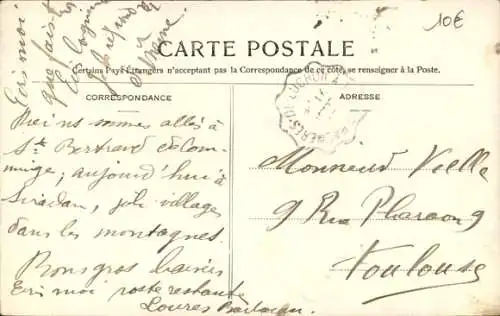 10€
Ecris moi
que fais t
CARTE POSTALE
Certains Pays Étrangers n'acceptent pas la Correspondance de ce côté, se renseigner à la Poste.
CORRESPONDANCE
ADRESSE
LUCHON
sommes allés à
St Bertrand de Com-
minge; aujourd'hui à
Siradan, joli village
dans les montagnes.
Bons gros baisers
Ecris moi poste restante
Loures Barbazan
Monsieur Vielle
9 Rue Pharaon 9
Toulouse